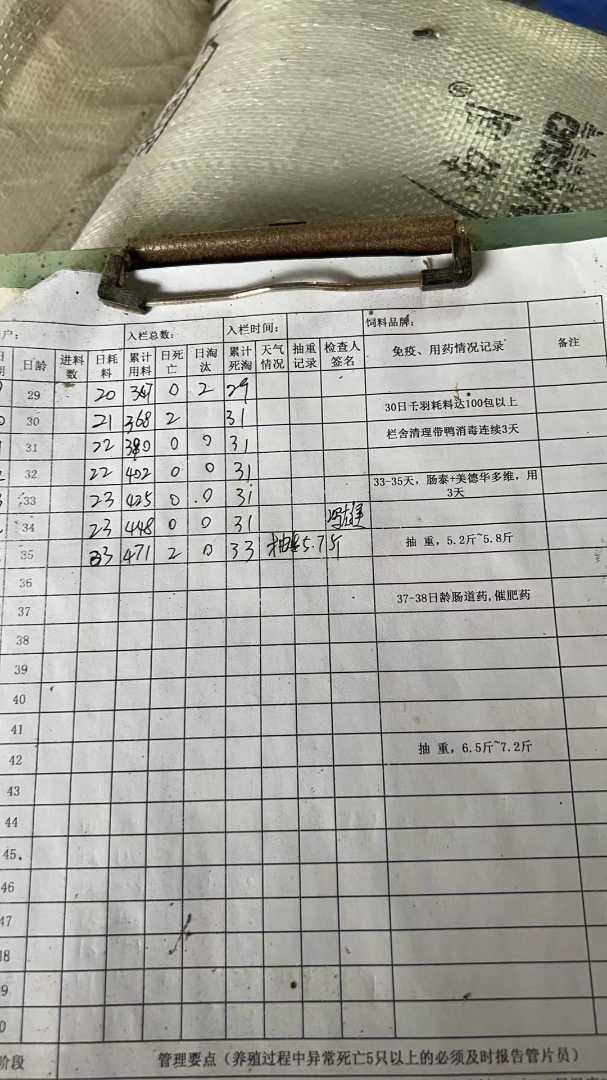 户： 入栏总数： 入栏时间： 饲料品牌：
日龄 进料数 日耗料 累计用料 日死亡 日淘汰 累计死淘 天气情况 抽重记录 检查人签名 免疫、用药情况记录 备注
29 20 347 0 2 29
30 21 368 2 31 30日千羽耗料达100包以上
31 22 380 0 0 31 栏舍清理带鸭消毒连续3天
32 22 402 0 0 31
33 23 425 0 0 31 33-35天，肠泰+美德华多维，用3天
34 23 448 0 0 31
35 23 471 2 0 33 抽重5.7斤 抽 重，5.2斤~5.8斤
36
37 37-38日龄肠道药,催肥药
38
39
40
41
42 抽 重，6.5斤~7.2斤
43
44
45
46
47
48
9
0
阶段 管理要点（养殖过程中异常死亡5只以上的必须及时报告管片员）